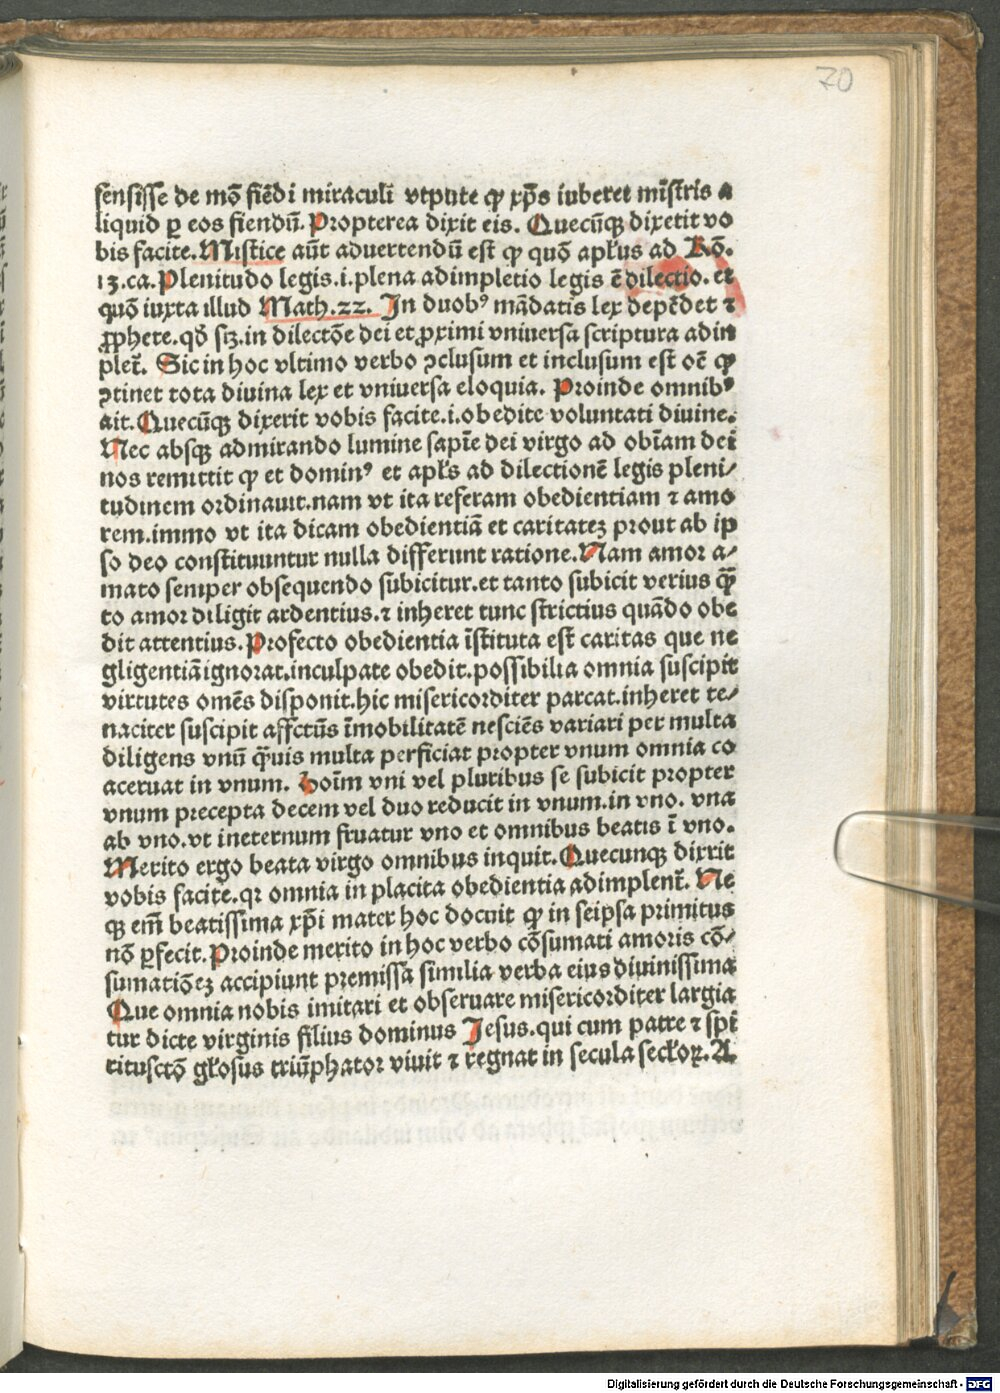 70
sensisse de mō fiēdi miraculi vtpute ꝙ xp̄s iuberet mīstris a
liquid ꝑ eos fiendū. Propterea dixit eis. Quecūqꝫ dixetit vo
bis facite. Mistice aūt aduertendū est ꝙ quō apłus ad Rō.
13.ca. Plenitudo legis.i.plena adimpletio legis ē dilectio. et
quō iuxta illud Math.22. In duobꝰ mādatis lex depēdet ⁊
ꝓphete. qđ sꝫ. in dilectōe dei et ꝓximi vniuersa scriptura adin
plet̄. Sic in hoc vltimo verbo ꝯclusum et inclusum est oē ꝙ
ꝯtinet tota diuina lex et vniuersa eloquia. Proinde omnibꝰ
ait. Quecūqꝫ dixerit vobis facite.i.obedite voluntati diuine.
Nec absqꝫ admirando lumine sapīe dei virgo ad obīam dei
nos remittit ꝙ et dominꝰ et apłs ad dilectionē legis pleni/
tudinem ordinauit.nam vt ita referam obedientiam ⁊ amo
rem.immo vt ita dicam obedientiā et caritateꝫ prout ab ip
so deo constituuntur nulla differunt ratione. Nam amor a/
mato semper obsequendo subicitur.et tanto subicit verius q̄̄
to amor diligit ardentius.⁊ inheret tunc strictius quādo obe
dit attentius. Profecto obedientia īstituta est caritas que ne
gligentiā ignorat.inculpate obedit.possibilia omnia suscipit
virtutes omēs disponit.hic misericorditer parcat.inheret te/
naciter suscipit affctūs īmobilitatē nesciēs variari per multa
diligens vnū q̄uis multa perficiat propter vnum omnia co
aceruat in vnum. Hoīm vni vel pluribus se subicit propter
vnum precepta decem vel duo reducit in vnum.in vno. vna
ab vno.vt ineternum fruatur vno et omnibus beatis ī vno.
Merito ergo beata virgo omnibus inquit. Quecunqꝫ dixrit
vobis facite.qꝛ omnia in placita obedientia adimplent̄. Ne
qꝫ em̄ beatissima xp̄i mater hoc docuit ꝙ in seipsa primitus
nō ꝑfecit. Proinde merito in hoc verbo cōsumati amoris cō/
sumatiōeꝫ accipiunt premissa similia verba eius diuinissima
Que omnia nobis imitari et obseruare misericorditer largia
tur dicte virginis filius dominus Jesus.qui cum patre ⁊ spī
ritusctō głosus triūphator viuit ⁊ regnat in secula secłoꝝ. A.
Digitalisierung gefördert durch die Deutsche Forschungsgemeinschaft - DFG